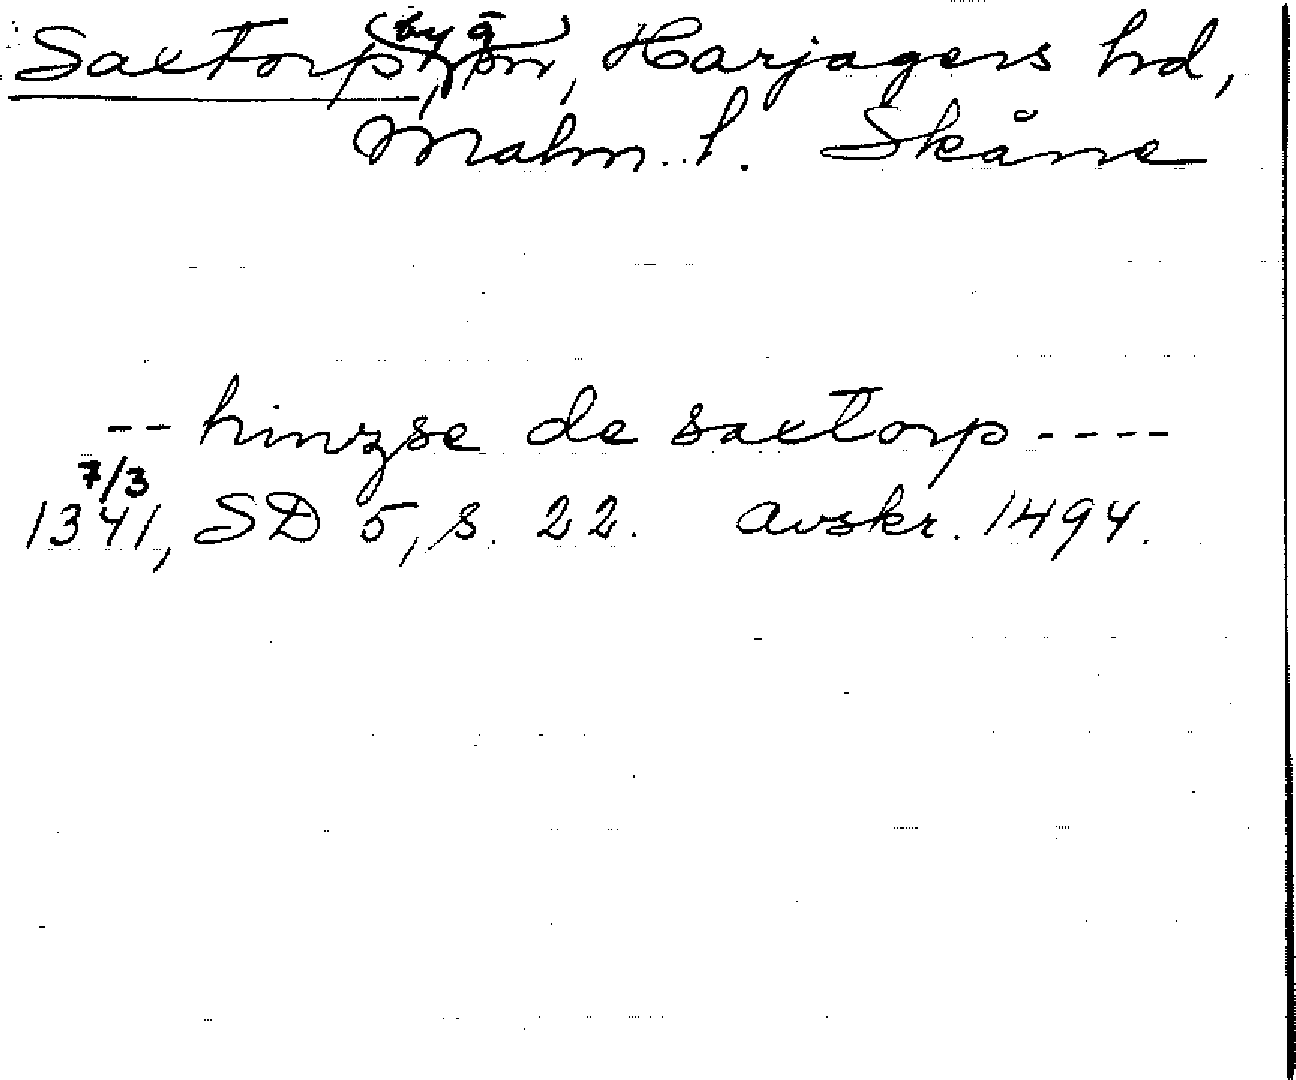 Saxtorp, (by o) sn, Harjagers hd,
Malm. l. Skåne
-- hinzse de saxtorp ----
7/3
1341, SD 5, s. 22. avskr. 1494.